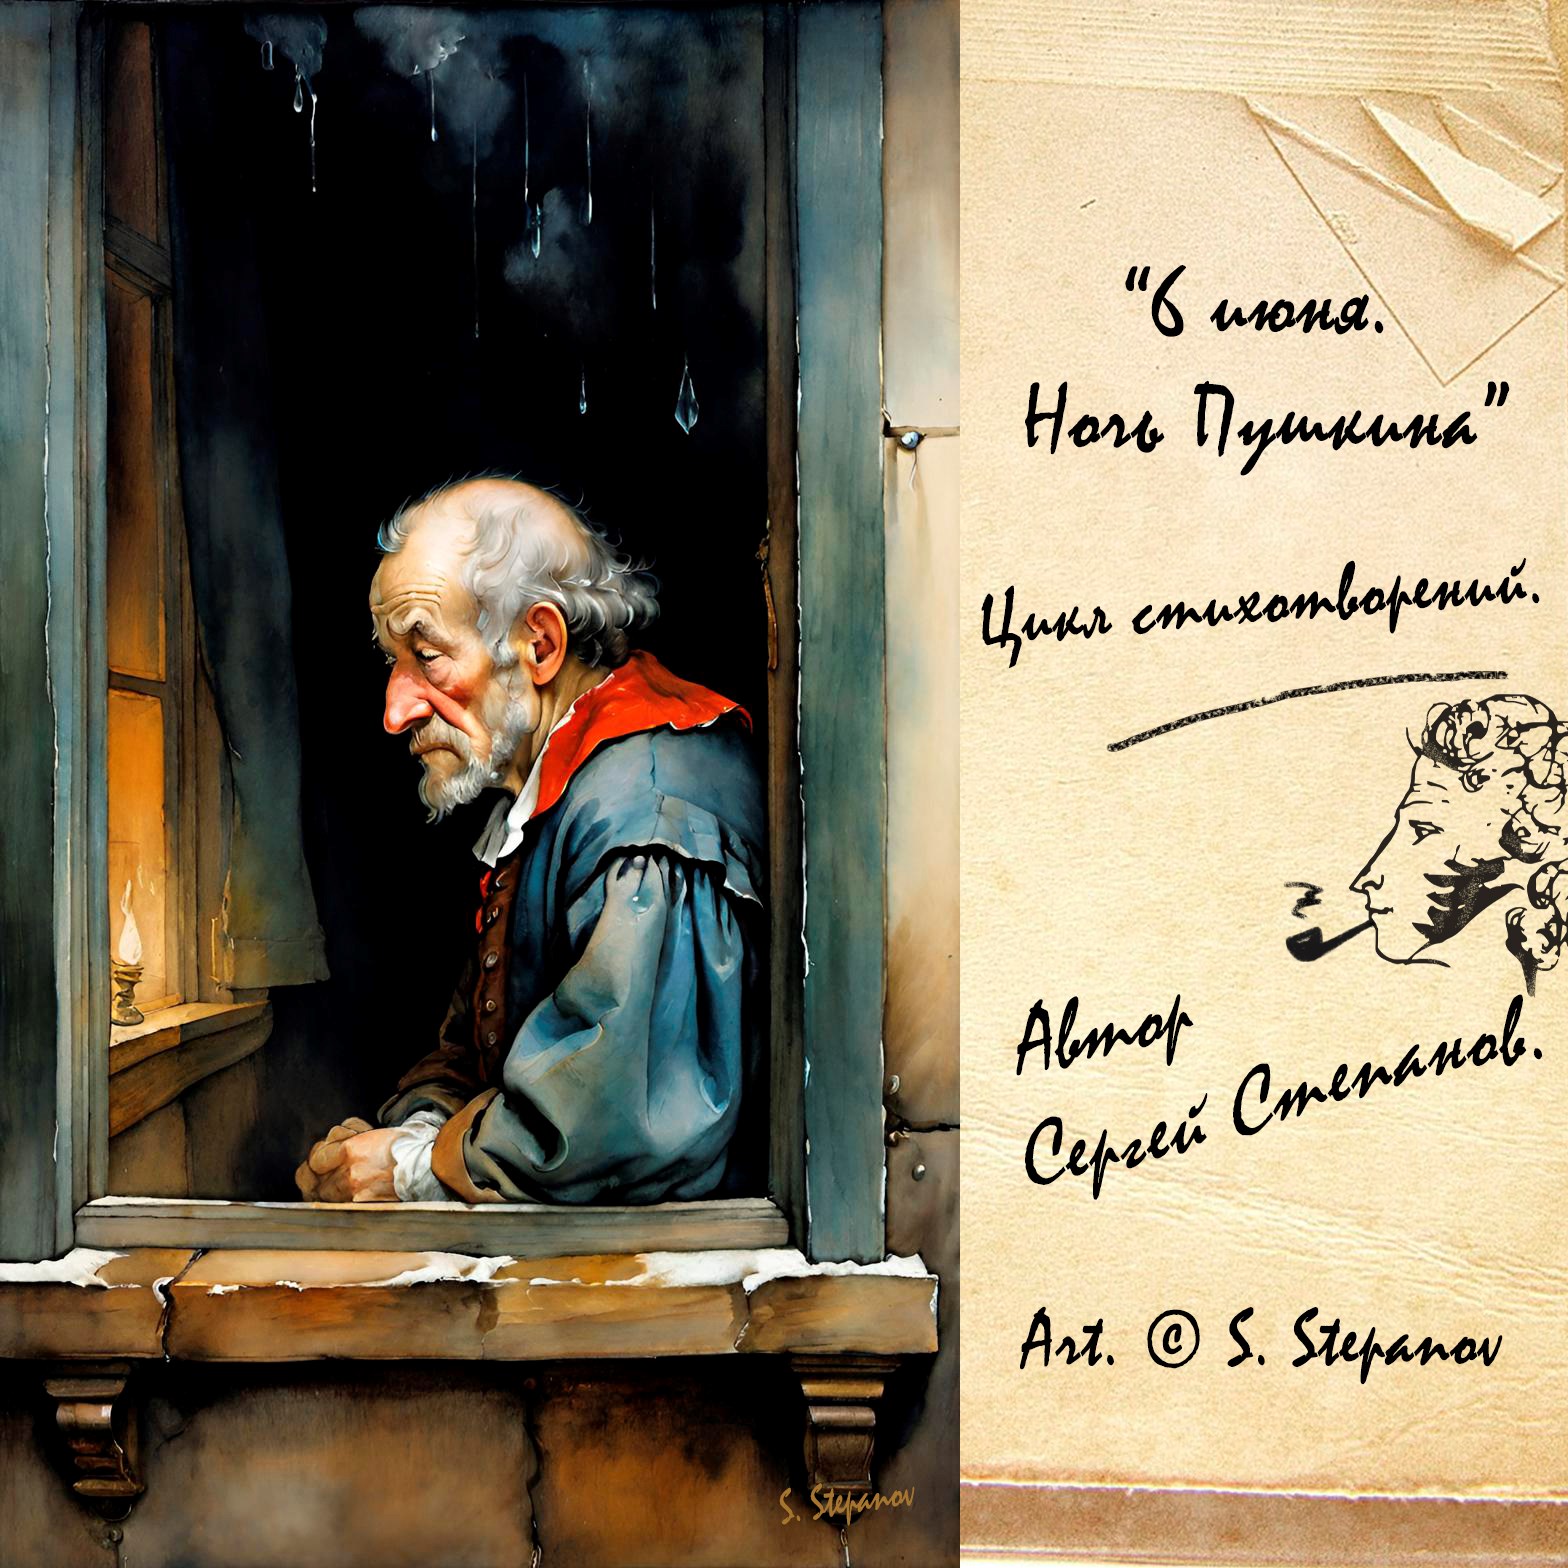 “6 июня.
Ночь Пушкина”
Цикл стихотворений.
Автор
Сергей Степанов.
Art. © S. Stepanov
S. Stepanov